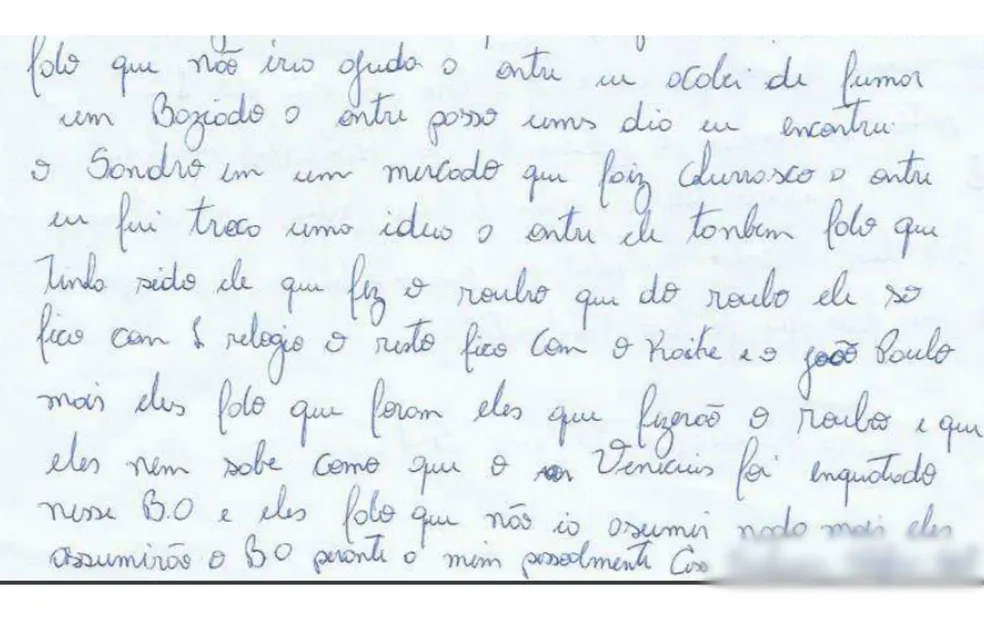 falo que não iria ajuda o entre eu acabei de fumor
um Baziado o entre passo ums dia eu encontrei
o Sandro em um mercado que faiz churrasco o entre
eu fui troca uma ideia o entre ele tonbem falo que
tinha sido ele que fez o roubo que do roubo ele so
fico com 1 relogio o resto fico com o Kaike e o joão Paulo
mais eles falo que foram eles que fizerão o roubo e que
eles nem sabe como que o Venicius foi enquatado
nesse B.O e eles falo que não io asumir nada mais eles
assumirão o BO perante o mim pessoalmente